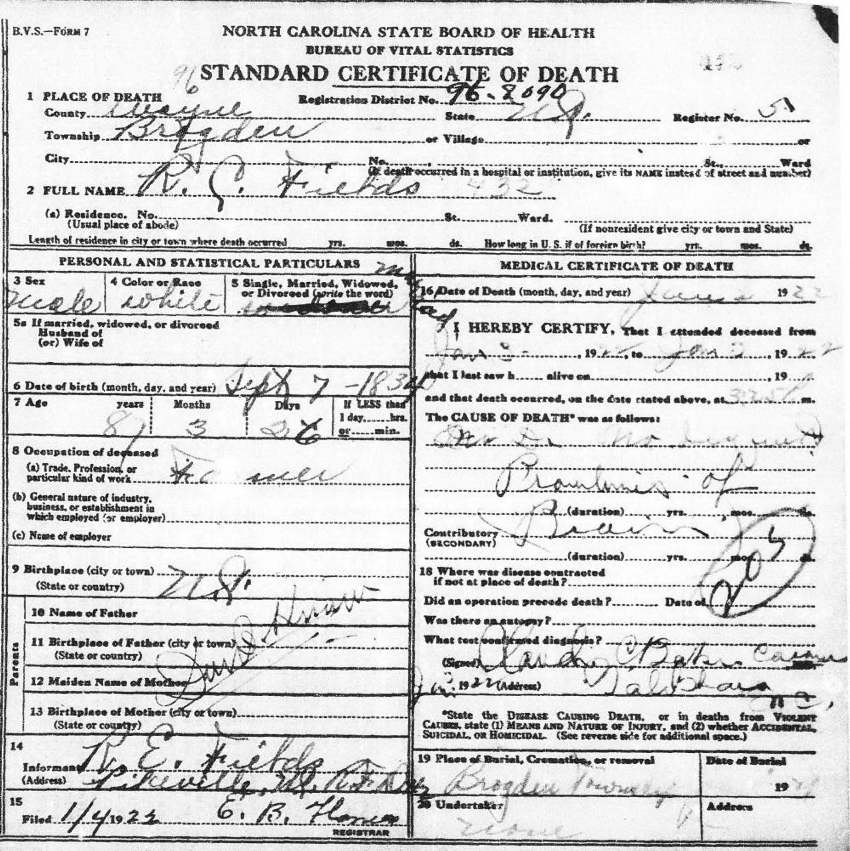 B.V.S.—FORM 7
NORTH CAROLINA STATE BOARD OF HEALTH
BUREAU OF VITAL STATISTICS
STANDARD CERTIFICATE OF DEATH
96
1 PLACE OF DEATH
Registration District No. 96-8090
County Wayne State N.C. Register No. 51
Township Brogden or Village or
City No. St. Ward
(If death occurred in a hospital or institution, give its NAME instead of street and number)
2 FULL NAME R. C. Fields 432
(a) Residence. No. St. Ward.
(Usual place of abode) (If nonresident give city or town and State)
Length of residence in city or town where death occurred yrs. mos. ds. How long in U. S. if of foreign birth? yrs. mos. ds.
PERSONAL AND STATISTICAL PARTICULARS
3 Sex
male
4 Color or Race
white
5 Single, Married, Widowed,
or Divorced (write the word)
5a If married, widowed, or divorced
Husband of
(or) Wife of
6 Date of birth (month, day, and year) Sept 7 - 1834
7 Age years Months Days If LESS than
1 day, hrs.
87 3 26 or min.
8 Occupation of deceased
(a) Trade, Profession, or
particular kind of work Farmer
(b) General nature of industry,
business, or establishment in
which employed (or employer)
(c) Name of employer
9 Birthplace (city or town)
(State or country) N.C.
Parents
10 Name of Father
11 Birthplace of Father (city or town)
(State or country)
12 Maiden Name of Mother
13 Birthplace of Mother (city or town)
(State or country)
14
Informant R. E. Fields
(Address) Pikeville, N.C. R.F.D.
15
Filed 1/4 1922 E. B.
REGISTRAR
MEDICAL CERTIFICATE OF DEATH
16 Date of Death (month, day, and year) 1922
I HEREBY CERTIFY, That I attended deceased from
Jan 3 1922, to Jan 3, 1922
that I last saw h alive on, 19
and that death occurred, on the date stated above, at m.
The CAUSE OF DEATH* was as follows:
of
(duration) yrs. mos. ds.
Contributory
(SECONDARY)
Brain
(duration) yrs. mos. ds.
203
18 Where was disease contracted
if not at place of death?
Did an operation precede death? Date of
Was there an autopsy?
What test confirmed diagnosis?
(Signed)
1922 (Address)
N.C.
*State the DISEASE CAUSING DEATH, or in deaths from VIOLENT
CAUSES, state (1) MEANS AND NATURE OF INJURY, and (2) whether ACCIDENTAL,
SUICIDAL, or HOMICIDAL. (See reverse side for additional space.)
19 Place of Burial, Cremation, or removal
Brogden Township
Date of Burial
19
20 Undertaker
none
Address